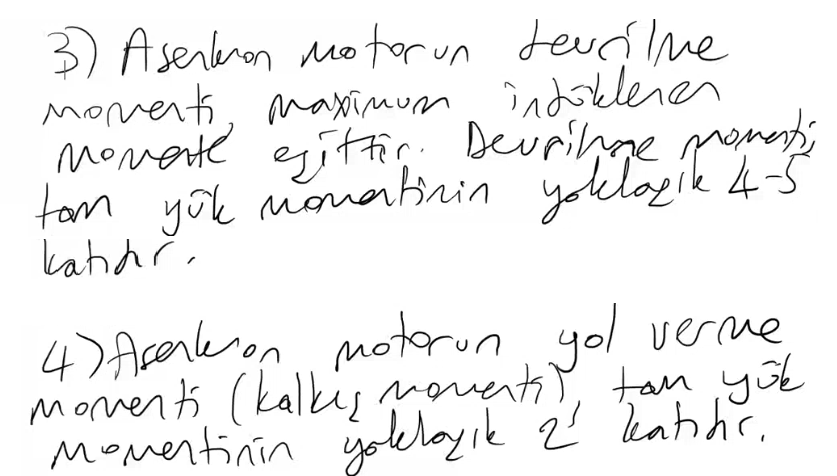 3) Asenkron motorun devrilme
momenti, maximum indüklenen
momente eşittir. Devrilme momenti,
tam yük momentinin yaklaşık 4-5
katıdır.
4) Asenkron motorun yol verme
momenti (kalkış momenti), tam yük
momentinin yaklaşık 2 katıdır.